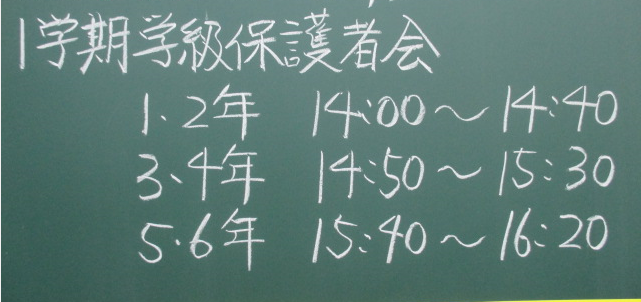 1学期学級保護者会
1.2年 14:00～14:40
3、4年 14:50～15:30
5.6年 15:40～16:20